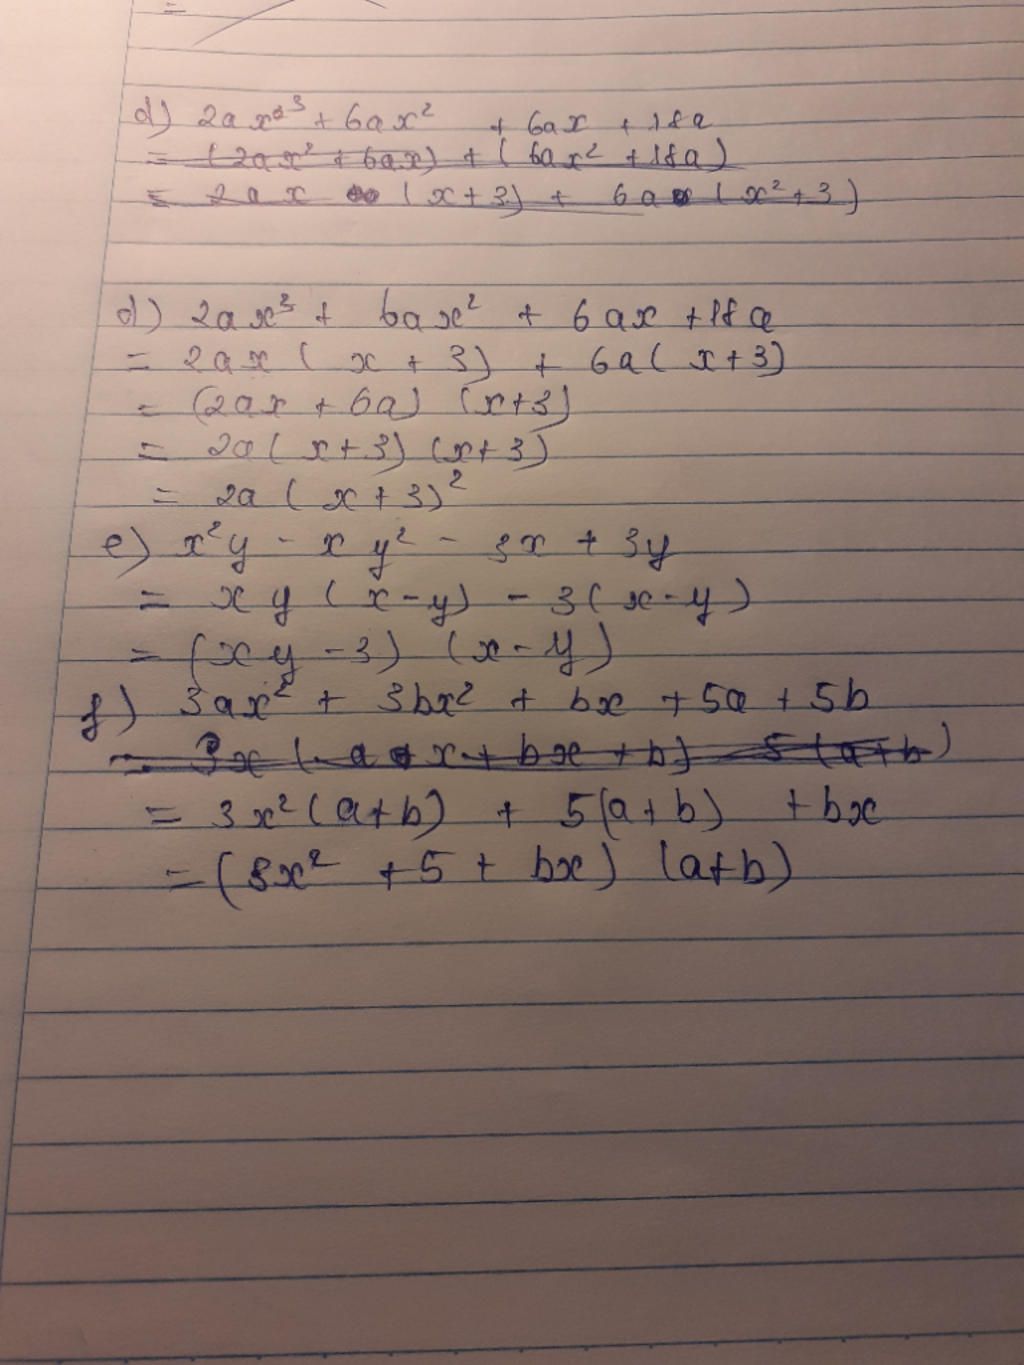 =
d) 2ax³ + 6ax² + 6ax + 18a
= (2ax² + 6ax) + (6ax² + 18a)
= 2ax (x+3) + 6a (x²+3)
d) 2ax³ + 6ax² + 6ax + 18a
= 2ax (x + 3) + 6a (x+3)
= (2ax + 6a) (x+3)
= 2a (x+3) (x+3)
= 2a (x+3)²
e) x²y - xy² - 3x + 3y
= xy (x-y) - 3(x-y)
= (xy - 3) (x-y)
f) 3ax² + 3bx² + bx + 5a + 5b
= 3x (a x + bx + b) 5 (a+b)
= 3x² (a+b) + 5(a+b) + bx
= (3x² + 5 + bx) (a+b)